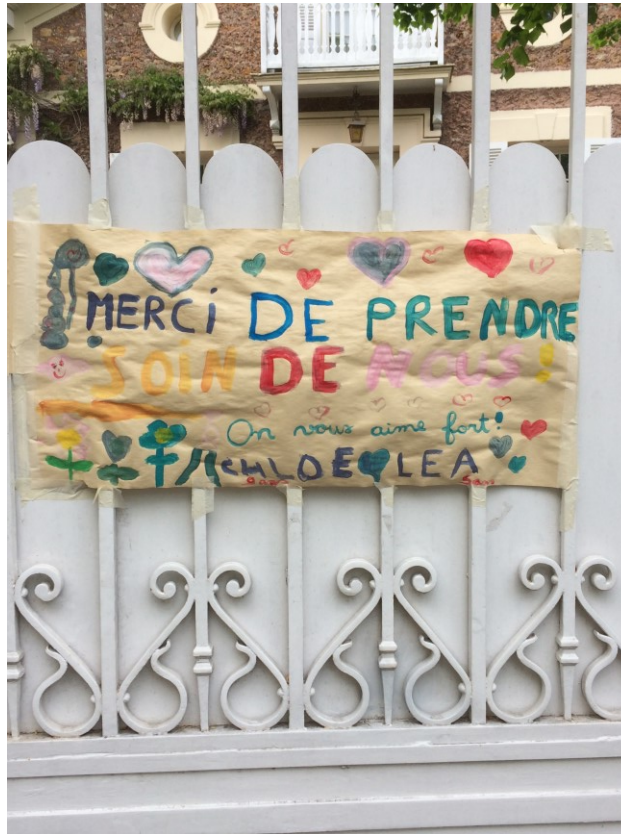 MERCi DE PRENDRE
SOiN DE NOUS!
On vous aime fort!
CHLOE LEA